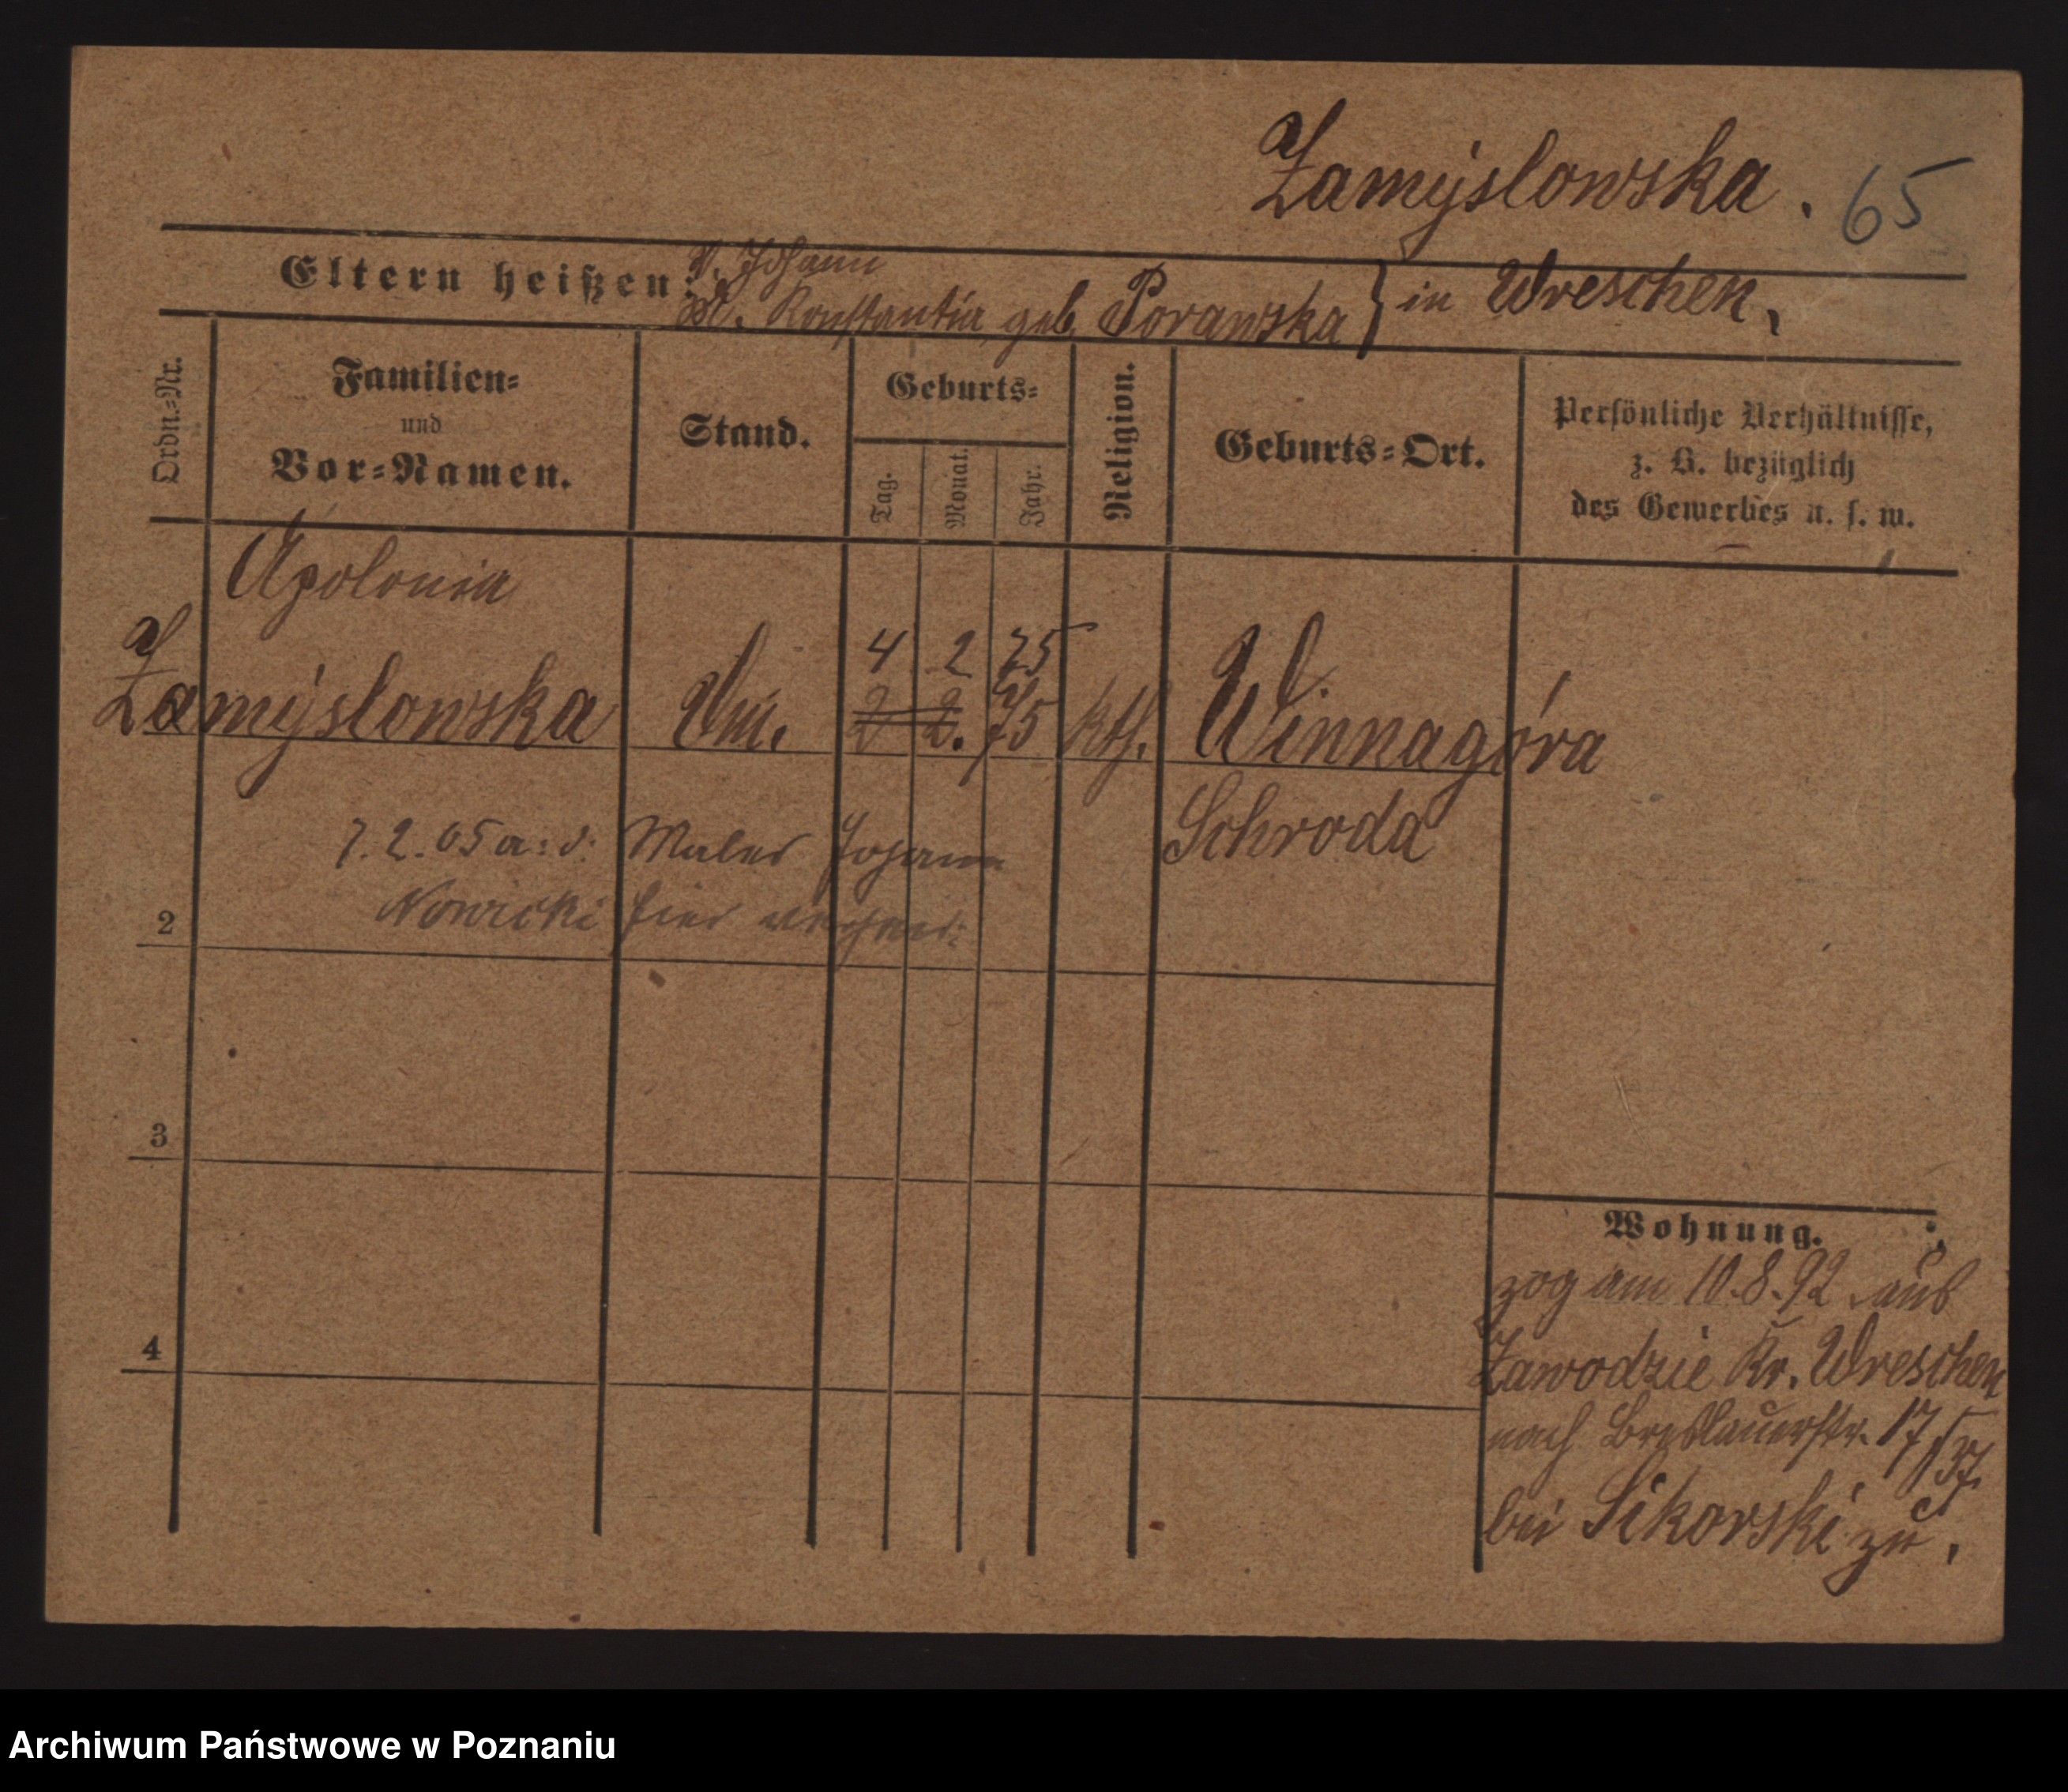 Zamyslowska. 65
Eltern heißen: V. Johann
M. Konstantia geb. Porawska } in Wreschen,
Ordn.-Nr.
Familien-
und
Vor-Namen.
Stand.
Geburts-
Tag.
Monat.
Jahr.
Religion.
Geburts-Ort.
Persönliche Verhältnisse,
z. B. bezüglich
des Gewerbes u. s. w.
Apolonia
4 2 75
Zamyslowska 2 2. 75 kth. Winnagóra
Schroda
7.2.05 a: d: Maler Johann
Nowicki hier
2
3
4
Wohnung.
zog am 10.8.92 aus
Zawodzie Kr. Wreschen
nach Breslauerstr. 17/
bei Sikorski zu.
Archiwum Państwowe w Poznaniu